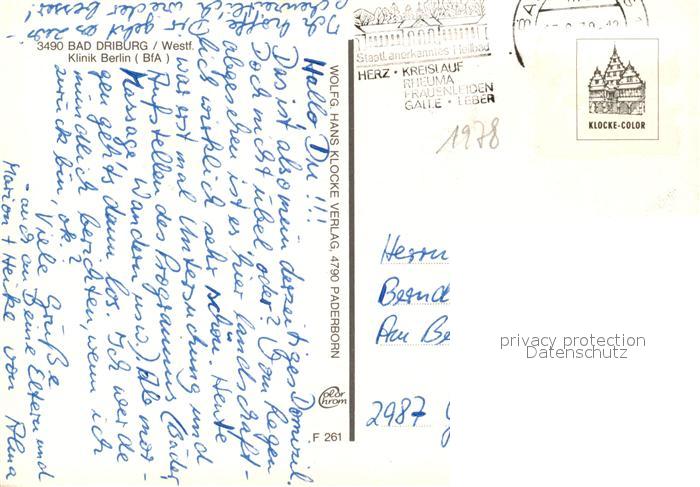 3490 BAD DRIBURG / Westf.
Klinik Berlin ( BfA )
Hallo Du!!!
Das ist also mein derzeitiges Domizil.
Doch nicht übel, oder? Vom Regen
abgesehen ist es hier landschaft-
lich wirklich sehr schön. Heute
war erst mal Untersuchung und
Aufstellen des Programms (Bäder,
Massage, Wandern usw.) Ab mor-
gen geht's dann los. Ich werde
mündlich berichten, wenn ich
zurück bin, ok?
Viele Grüße
- auch an Deine Eltern und
Marion + Heike von Alma
Ich hoffe
Dir geht es zwi-
schenzeitlich
wieder besser!
WOLFG. HANS KLOCKE VERLAG, 4790 PADERBORN
color
chrom
F 261
Staatl. anerkanntes Heilbad
HERZ · KREISLAUF
RHEUMA
FRAUENLEIDEN
GALLE · LEBER
1978
KLOCKE-COLOR
Herrn
Bernd
Am Be
2987
privacy protection
Datenschutz